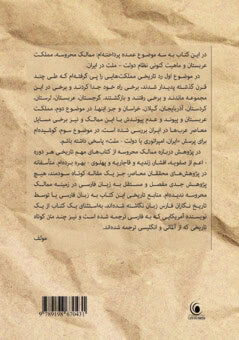 در این کتاب به سه موضوع عمده پرداخته‌ام: ممالک محروسه، مملکت
عربستان و ماهیت کنونی نظام دولت - ملت در ایران.
در موضوع اول رد تاریخی مملکت‌هایی را پی گرفته‌ام که طی چند
قرن گذشته پدیدار شدند، برخی راه خود جدا کردند و برخی در این
مجموعه ماندند و برخی رفتند و بازگشتند. گرجستان، عربستان، لرستان،
کردستان، آذربایجان، گیلان، خراسان و جز اینها. در موضوع دوم، مملکت
عربستان و پیوند و عدم پیوندش با این ممالک و نیز برخی مسایل
معاصر عرب‌ها در ایران بررسی شده است. در موضوع سوم، کوشیده‌ام
برای پرسش «ایران، امپراتوری یا دولت - ملت» پاسخی داشته باشم.
در پژوهش درباره ممالک محروسه از کتاب‌های مهم تاریخی هر دوره
- اعم از صفویه، افشار، زندیه و قاجاریه و پهلوی - بهره برده‌ام. متأسفانه
در پژوهش‌های محققان معاصر، جز یک مقاله کوتاه سودمند، هیچ
پژوهش جدی مفصل و مستقل به زبان فارسی در زمینه ممالک
محروسه ندیده‌ام. منابع تاریخی این کتاب به زبان فارسی یا توسط
تاریخ نگاران فارس زبان نگاشته شده‌اند، به‌استثنای یک کتاب از یک
نویسنده آمریکایی که به فارسی ترجمه شده است و نیز چند متن کوتاه
تاریخی که از آلمانی و انگلیسی ترجمه شده‌اند.
مولف
9789198670431